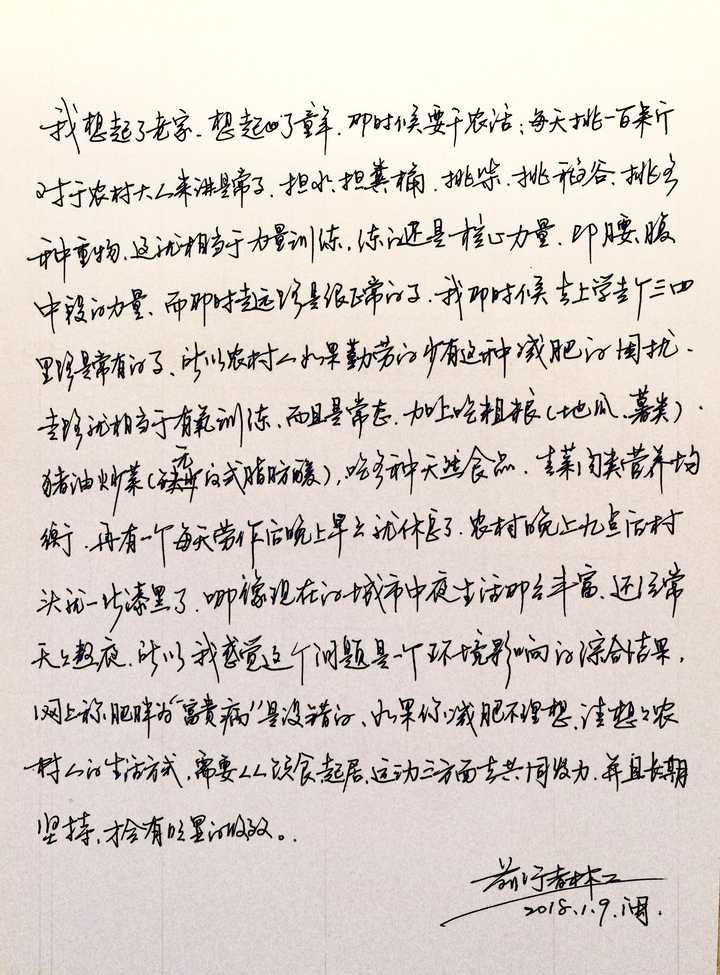 我想起了老家、想起了童年,那时候要干农活;每天挑一百来斤
对于农村大人来讲是常事,担水、担粪桶、挑柴、挑稻谷、挑各
种重物、这就相当于力量训练,练的还是核心力量,即腰、腹
中段的力量,而那时走远路是很正常的了,我那时候去上学走个三四
里路是常有的了、所以农村人如果勤劳的少有这种减肥的困扰、
走路就相当于有氧训练、而且是常态,加上吃粗粮(地瓜、薯类)、
猪油炒菜(元的式脂肪酸),吃各种天然食品,青菜肉类营养均
衡,再有一个每天劳作后晚上早早就休息了,农村晚上九点后村
头就一片漆黑了,哪像现在的城市中夜生活那么丰富、还经常
天天熬夜,所以我感觉这个问题是一个环境影响的综合结果,
网上称肥胖为“富贵病”是没错的、如果你减肥不理想,请想想农
村人的生活方式,需要从饮食起居、运动三方面去共同发力,并且长期
坚持,才会有明显的收效。
前行者林工
2018.1.9.闽.